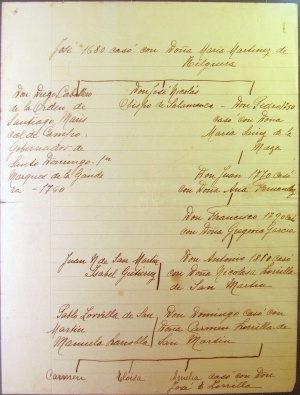 José 1680 casó con Doña Maria Martinez de
Don Diego
de la Orden de
Santiago, Maris
cal de Campo
Gobernador de
Santo Domingo. 1er
Marques de la Gánda
ra - 1760
Don José Nicolás
Obispo de Salamanca - Don Pedro 1750
casó con Doña
Maria Luiz de la
Maza
Don Juan 1770 casó
con Doña Ana Fernandez
Don Francisco 1790 casó
con Doña Gregoria Garcia
Juan N de San Martin
Isabel Gutierrez
Don Antonio 1820 casó
con Doña Nicolasa Zorrilla
de San Martin
Pablo Zorrilla de San
Martin
Manuela
Don Domingo casó con
Doña Carmen Zorrilla de
San Martin
Carmen
Eloisa
Amelia casó con Don
José E Zorrilla